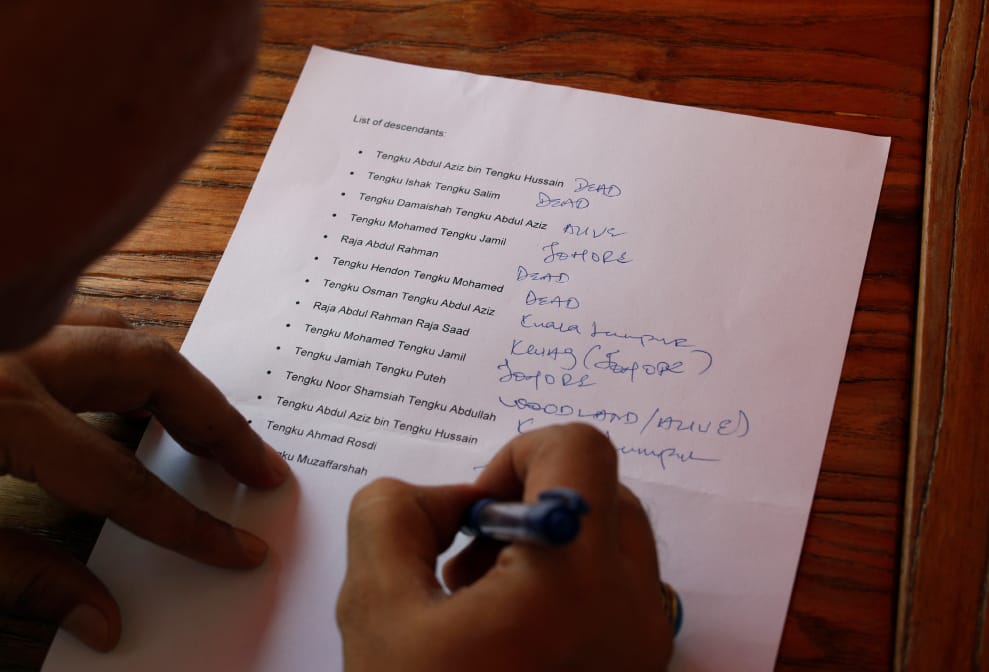 List of descendants:
• Tengku Abdul Aziz bin Tengku Hussain DEAD
• Tengku Ishak Tengku Salim DEAD
• Tengku Damaishah Tengku Abdul Aziz ALIVE
• Tengku Mohamed Tengku Jamil JOHORE
• Raja Abdul Rahman DEAD
• Tengku Hendon Tengku Mohamed DEAD
• Tengku Osman Tengku Abdul Aziz Kuala Lumpur
• Raja Abdul Rahman Raja Saad (JOHORE)
• Tengku Mohamed Tengku Jamil JOHORE
• Tengku Jamiah Tengku Puteh WOODLAND/ALIVE)
• Tengku Noor Shamsiah Tengku Abdullah Lumpur
• Tengku Abdul Aziz bin Tengku Hussain
• Tengku Ahmad Rosdi
Muzaffarshah